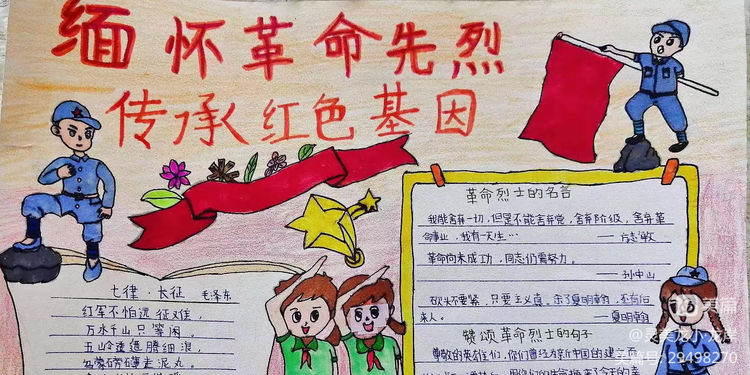 缅怀革命先烈
传承红色基因
七律·长征 毛泽东
红军不怕远征难，
万水千山只等闲。
五岭逶迤腾细浪，
乌蒙磅礴走泥丸。
革命烈士的名言
我能舍弃一切，但是不能舍弃党，舍弃阶级，舍弃革
命事业，我有一天生…
——方志敏
革命尚未成功，同志仍需努力。
——孙中山
砍头不要紧，只要主义真。杀了夏明翰，还有后
来人。 ——夏明翰
赞颂革命烈士的句子
尊敬的英雄们，你们曾经为新中国的建立
美篇
29498270